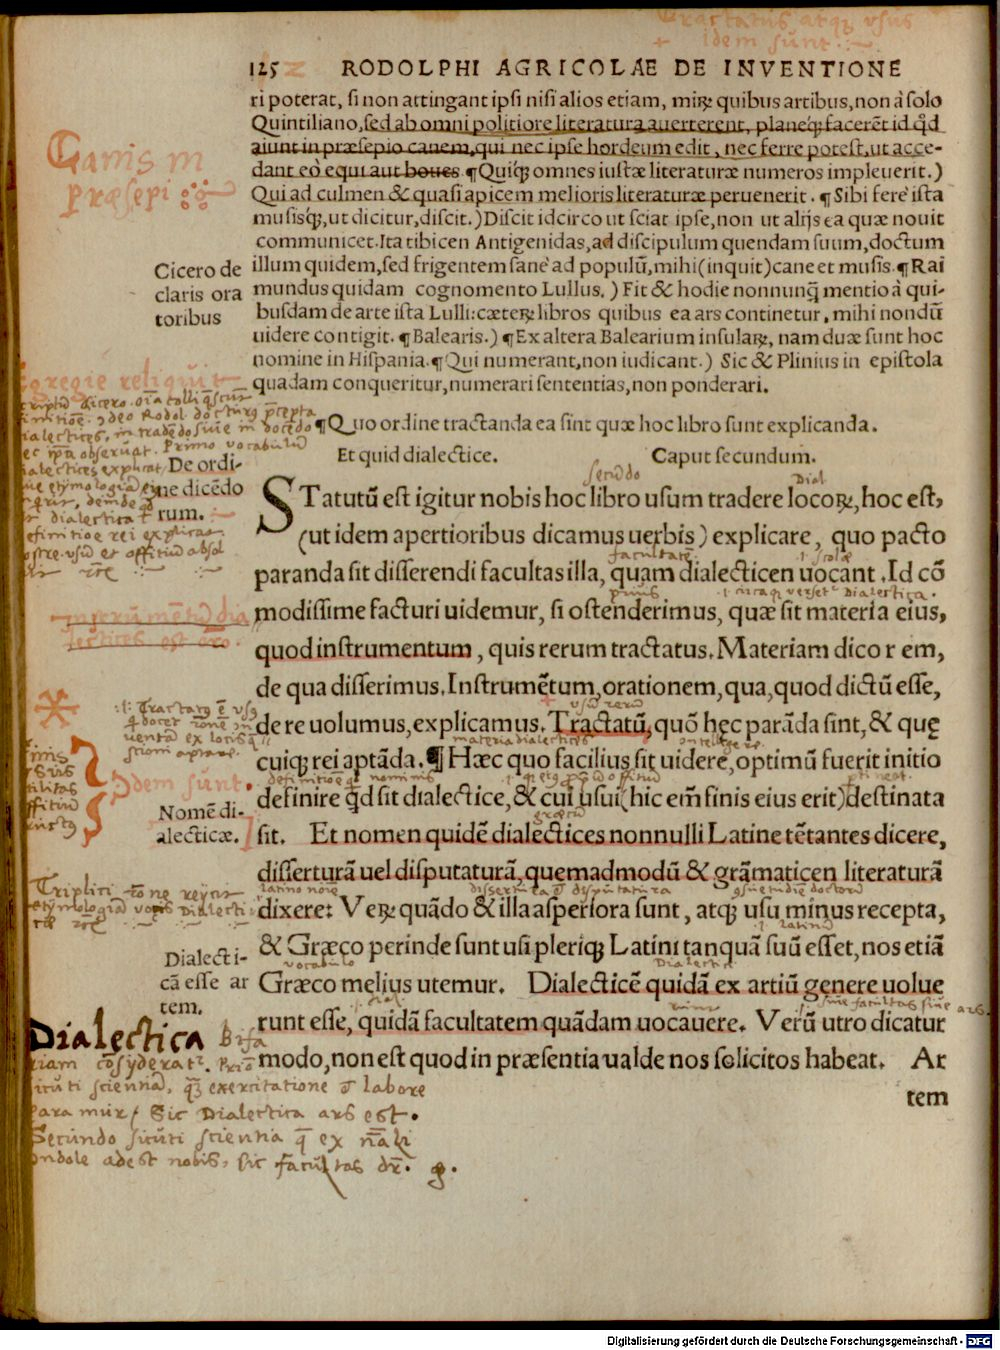 Tractatus atqꝫ vsus
idem sunt.
125 RODOLPHI AGRICOLAE DE INVENTIONE
ri poterat, si non attingant ipsi nisi alios etiam, miꝝ quibus artibus, non à solo
Quintiliano, sed ab omni politiore literatura auerterent, planeqꝫ facerẽt id qd̃
aiunt in præsepio canem, qui nec ipse hordeum edit, nec ferre potest, ut acce-
dant eò equi aut boues ¶ Quiqꝫ omnes iustæ literaturæ numeros impleuerit.)
Qui ad culmen & quasi apicem melioris literaturæ peruenerit. ¶ Sibi ferè ista
musisqꝫ, ut dicitur, discit.) Discit idcirco ut sciat ipse, non ut alijs ea quæ nouit
communicet. Ita tibicen Antigenidas, ad discipulum quendam suum, doctum
illum quidem, sed frigentem sanè ad populũ, mihi (inquit) cane et musis. ¶ Rai
mundus quidam cognomento Lullus.) Fit & hodie nonnunq̃ mentio à qui-
busdam de arte ista Lulli: cæteꝝ libros quibus ea ars continetur, mihi nondũ
uidere contigit. ¶ Balearis.) ¶ Ex altera Balearium insulaꝝ, nam duæ sunt hoc
nomine in Hispania. ¶ Qui numerant, non iudicant.) Sic & Plinius in epistola
quadam conqueritur, numerari sententias, non ponderari.
Canis in
præsepi
Cicero de
claris ora
toribus
¶ Quo ordine tractanda ea sint quæ hoc libro sunt explicanda.
Et quid dialectice. Caput secundum.
De ordi-
ne dicẽdo
rum.
secũdo Dial
STatutũ est igitur nobis hoc libro usum tradere locoꝝ, hoc est,
(ut idem apertioribus dicamus uerbis) explicare, quo pacto
facultatẽ
paranda sit disserendi facultas illa, quam dialecticen uocant. Id cõ
prius Dialectica.
modissime facturi uidemur, si ostenderimus, quæ sit materia eius,
quod instrumentum, quis rerum tractatus. Materiam dico r em,
de qua disserimus. Instrumẽtum, orationem, qua, quod dictũ esse,
usũ rerũ
de re uolumus, explicamus. Tractatũ, quõ hęc parãda sint, & quę
materia dialectices
cuiqꝫ rei aptãda. ¶ Hæc quo facilius sit uidere, optimũ fuerit initio
definitioẽ nominis
definire qd̃ sit dialectice, & cui usui (hic em̃ finis eius erit) destinata
græcũ
sit. Et nomen quidẽ dialectices nonnulli Latine tẽtantes dicere,
disserturã uel disputaturã, quemadmodũ & grãmaticen literaturã
latino noĩe
dixere: Veꝝ quãdo & illa asperiora sunt, atqꝫ usu minus recepta,
latinũ
& Græco perinde sunt usi pleriqꝫ Latini tanquã suũ esset, nos etiã
vocabulo Dialectic
Græco melius utemur. Dialecticẽ quidã ex artiũ genere uolue
siue facultas siue ars.
runt esse, quidã facultatem quãdam uocauere. Verũ utro dicatur
modo, non est quod in præsentia ualde nos solicitos habeat. Ar
tem
Instrumẽtũ dia
lectices est oro.
Idem sunt.
Nomẽ di-
alecticæ.
Dialecti-
cã esse ar
tem.
Dialectica Bifa
riam cõsyderatr. Prio
sicuti scientia, exercitatione et labore
paramur, Sic Dialectica ars est.
Secundo sicuti scientia q̃ ex
indole adest nobis, sic facultas dr̃.
Digitalisierung gefördert durch die Deutsche Forschungsgemeinschaft - DFG